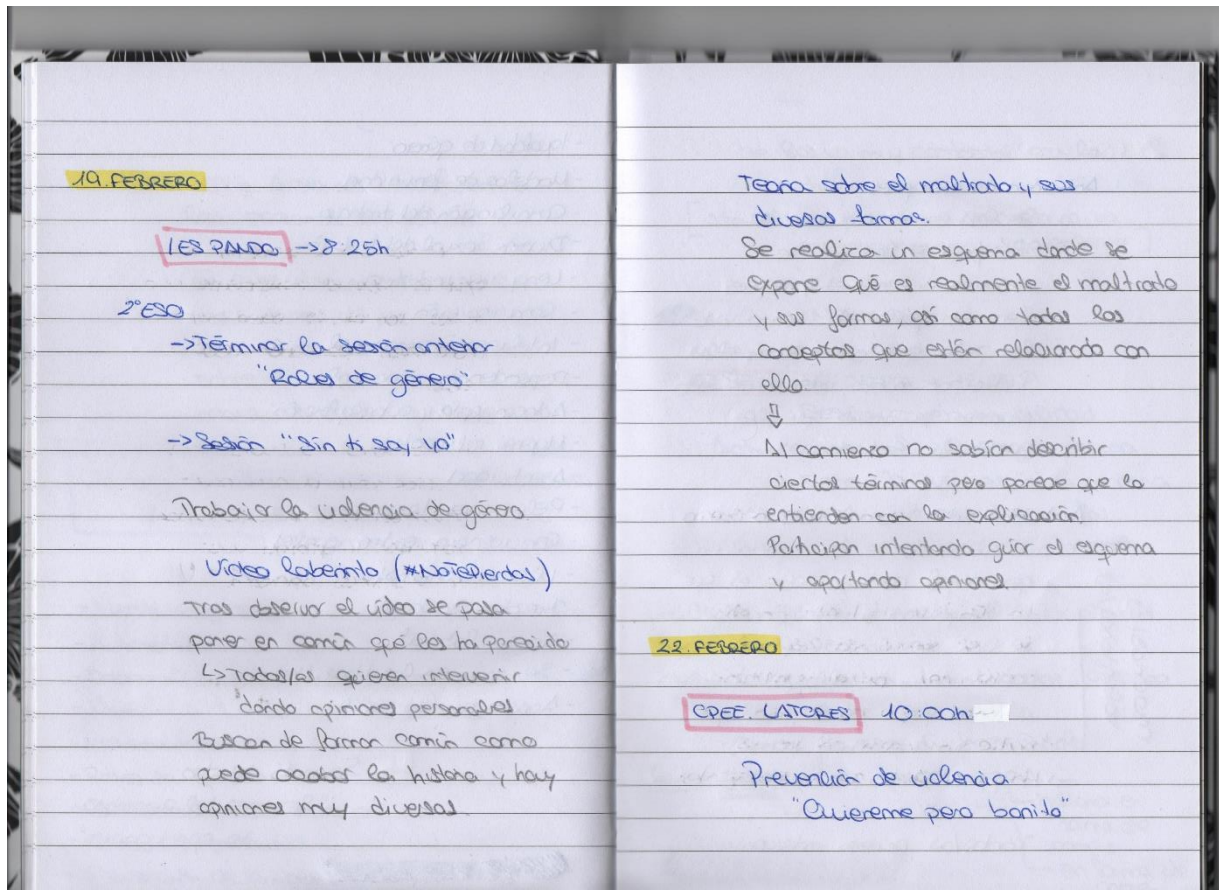 19.FEBRERO
IES PANDO -> 8:25h
2º ESO
-> Términar la sesión anterior
"Roles de género"
-> Sesión "Sin ti soy yo"
Trabajar la violencia de género
Vídeo laberinto (#NoTePierdas)
Tras observar el vídeo se pasa
poner en común qué les ha parecido
↳ Todos/as quieren intervenir
dando opiniones personales
Buscan de forman común como
puede acabar la historia y hay
opiniones muy diversas.
Teoría sobre el maltrado y sus
diversas formas.
Se realiza un esquema donde se
expone qué es realmente el maltrado
y sus formas, así como todos los
conceptos que están relacionado con
ello
⇓
Al comienzo no sabían describir
ciertos términos pero parece que lo
entienden con la explicación.
Participan intentando guiar el esquema
y aportando opiniones.
22.FEBRERO
CPEE. LATORES 10:00h
Prevención de violencia
"Quiereme pero bonito"